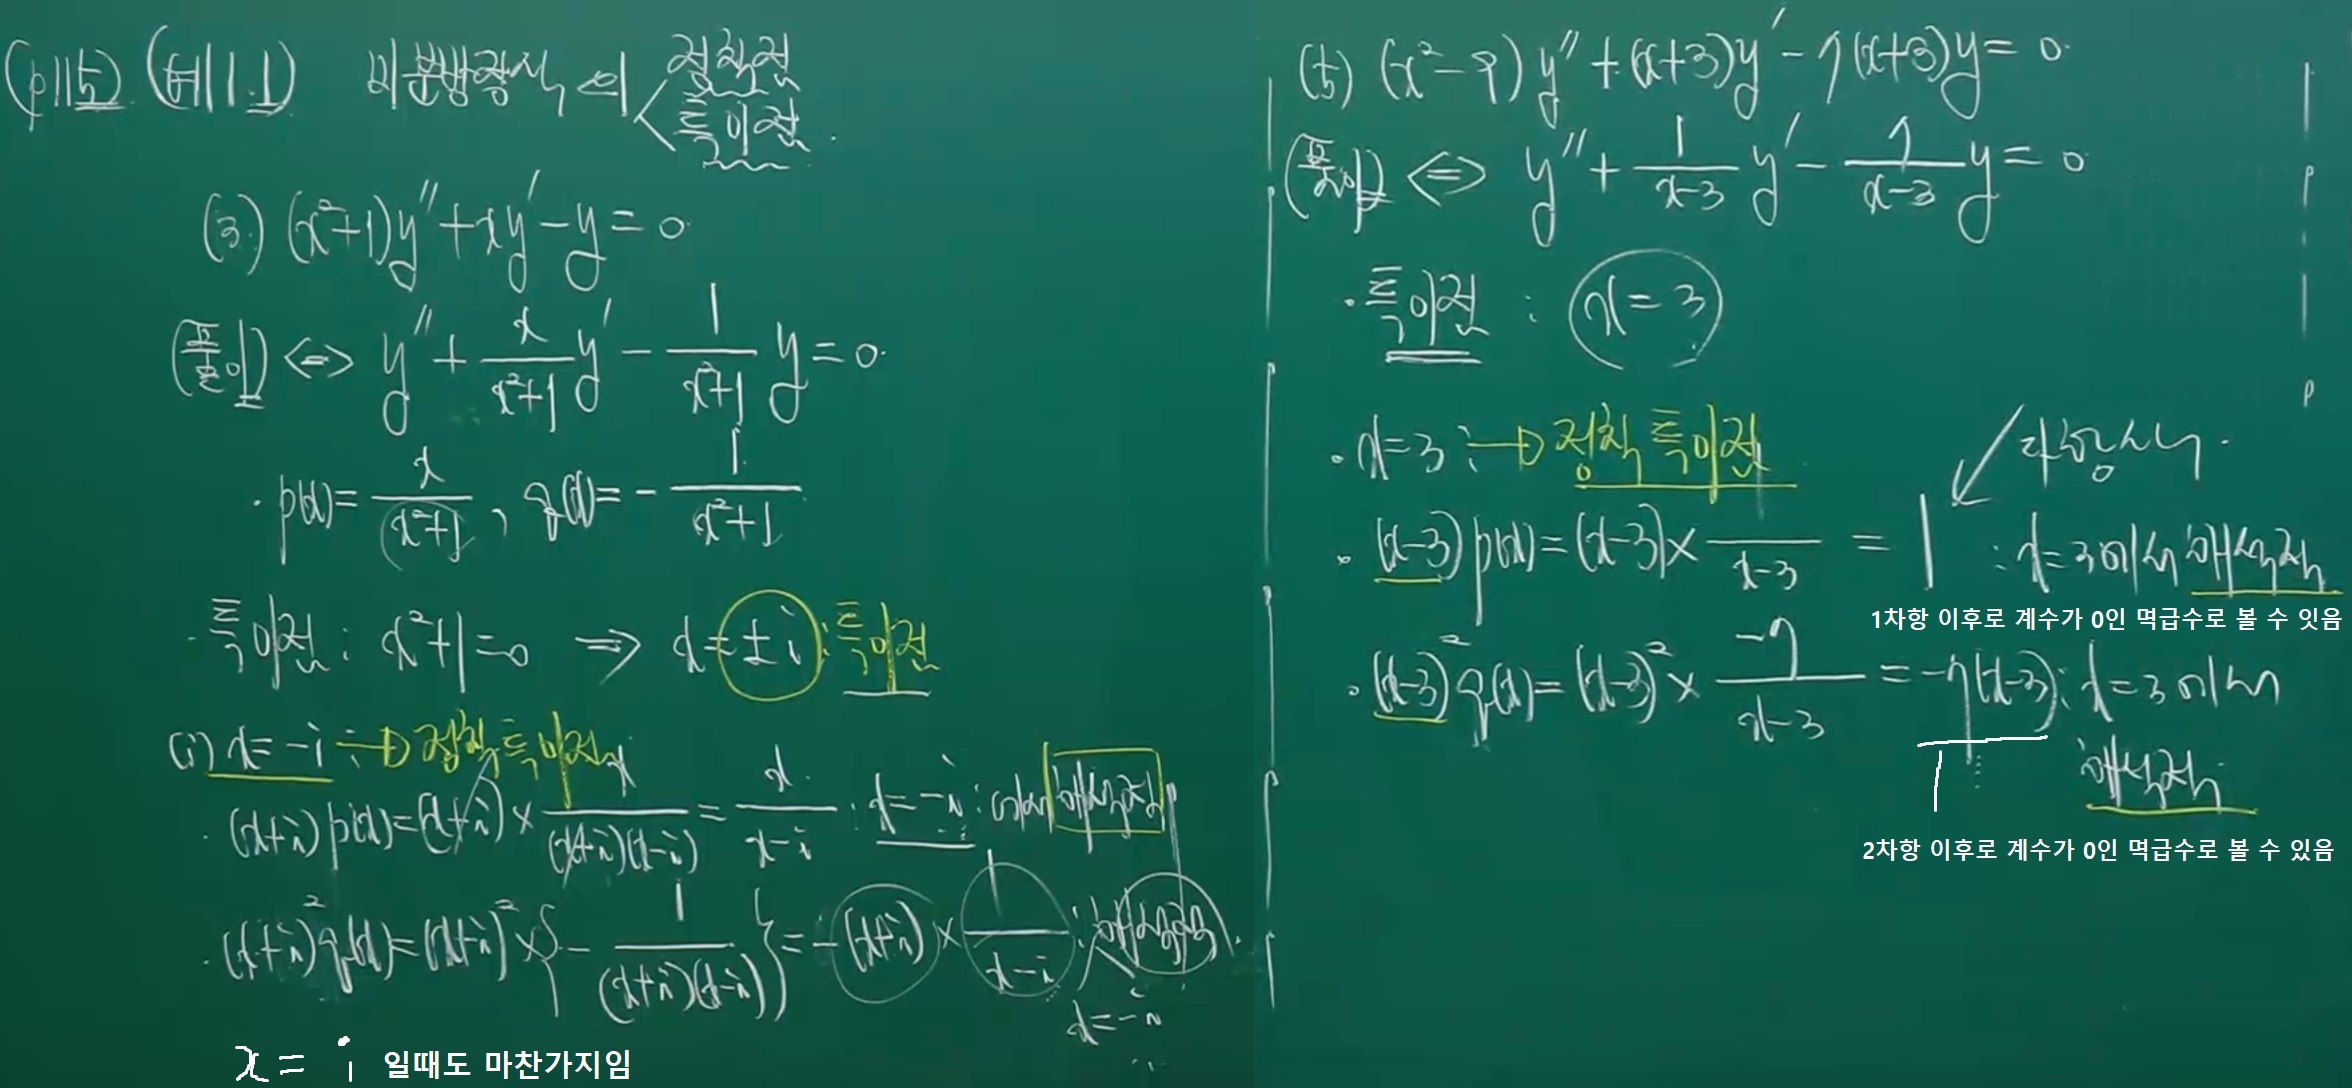 (p115) (예 1.1) 미분방정식의 < 정칙점
특이점.
(3) (x²+1)y″+xy′-y=0.
(풀이) <=> y″ + x/(x²+1) y′ - 1/(x²+1) y = 0.
· p(x) = x/(x²+1), q(x) = - 1/(x²+1)
· 특이점 : x²+1=0 ⇒ x=±i : 특이점
(i) x=-i : → 정칙 특이점
· (x+i)p(x)=(x+i)× x/((x+i)(x-i)) = x/(x-i) : x=-i : 에서 해석적
· (x+i)²q(x)=(x+i)²×{- 1/((x+i)(x-i))} = -(x+i)× 1/(x-i) : 해석적.
x=-i
x = i 일때도 마찬가지임
(5) (x²-9)y″+(x+3)y′-7(x+3)y=0.
(풀이) <=> y″ + 1/(x-3) y′ - 7/(x-3) y = 0
· 특이점 : x=3
· x=3 : → 정칙 특이점
다항식.
· (x-3)p(x)=(x-3)× 1/(x-3) = 1 : x=3에서 해석적
1차항 이후로 계수가 0인 멱급수로 볼 수 잇음
· (x-3)²q(x)=(x-3)²× -7/(x-3) = -7(x-3) : x=3에서
해석적
2차항 이후로 계수가 0인 멱급수로 볼 수 있음